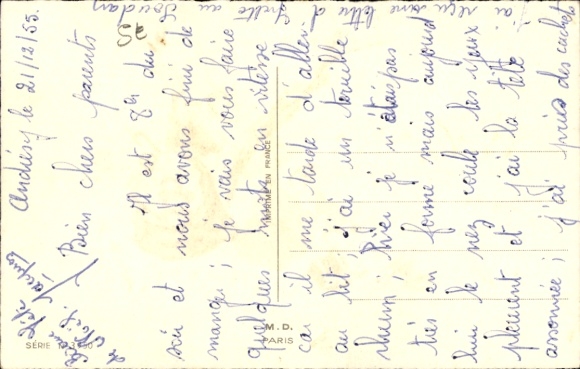 Andrésy le 21/12/55
Bien chers parents
Il est 8h du
soir et nous avons fini de
manger ; je vais vous faire
quelques mots en vitesse
car il me tarde d'aller
au lit j'ai un terrible
rhum ; hier je n'étais pas
très en forme mais aujourd
hui le nez coule les yeux
pleurent et j'ai la tête
assonnée ; j'ai pris des cachets
j'ai reçu une lettre d'
au Soudan
Bonne fête
de Noël.
Jacques
IMPRIMÉ EN FRANCE
M. D.
PARIS
SÉRIE